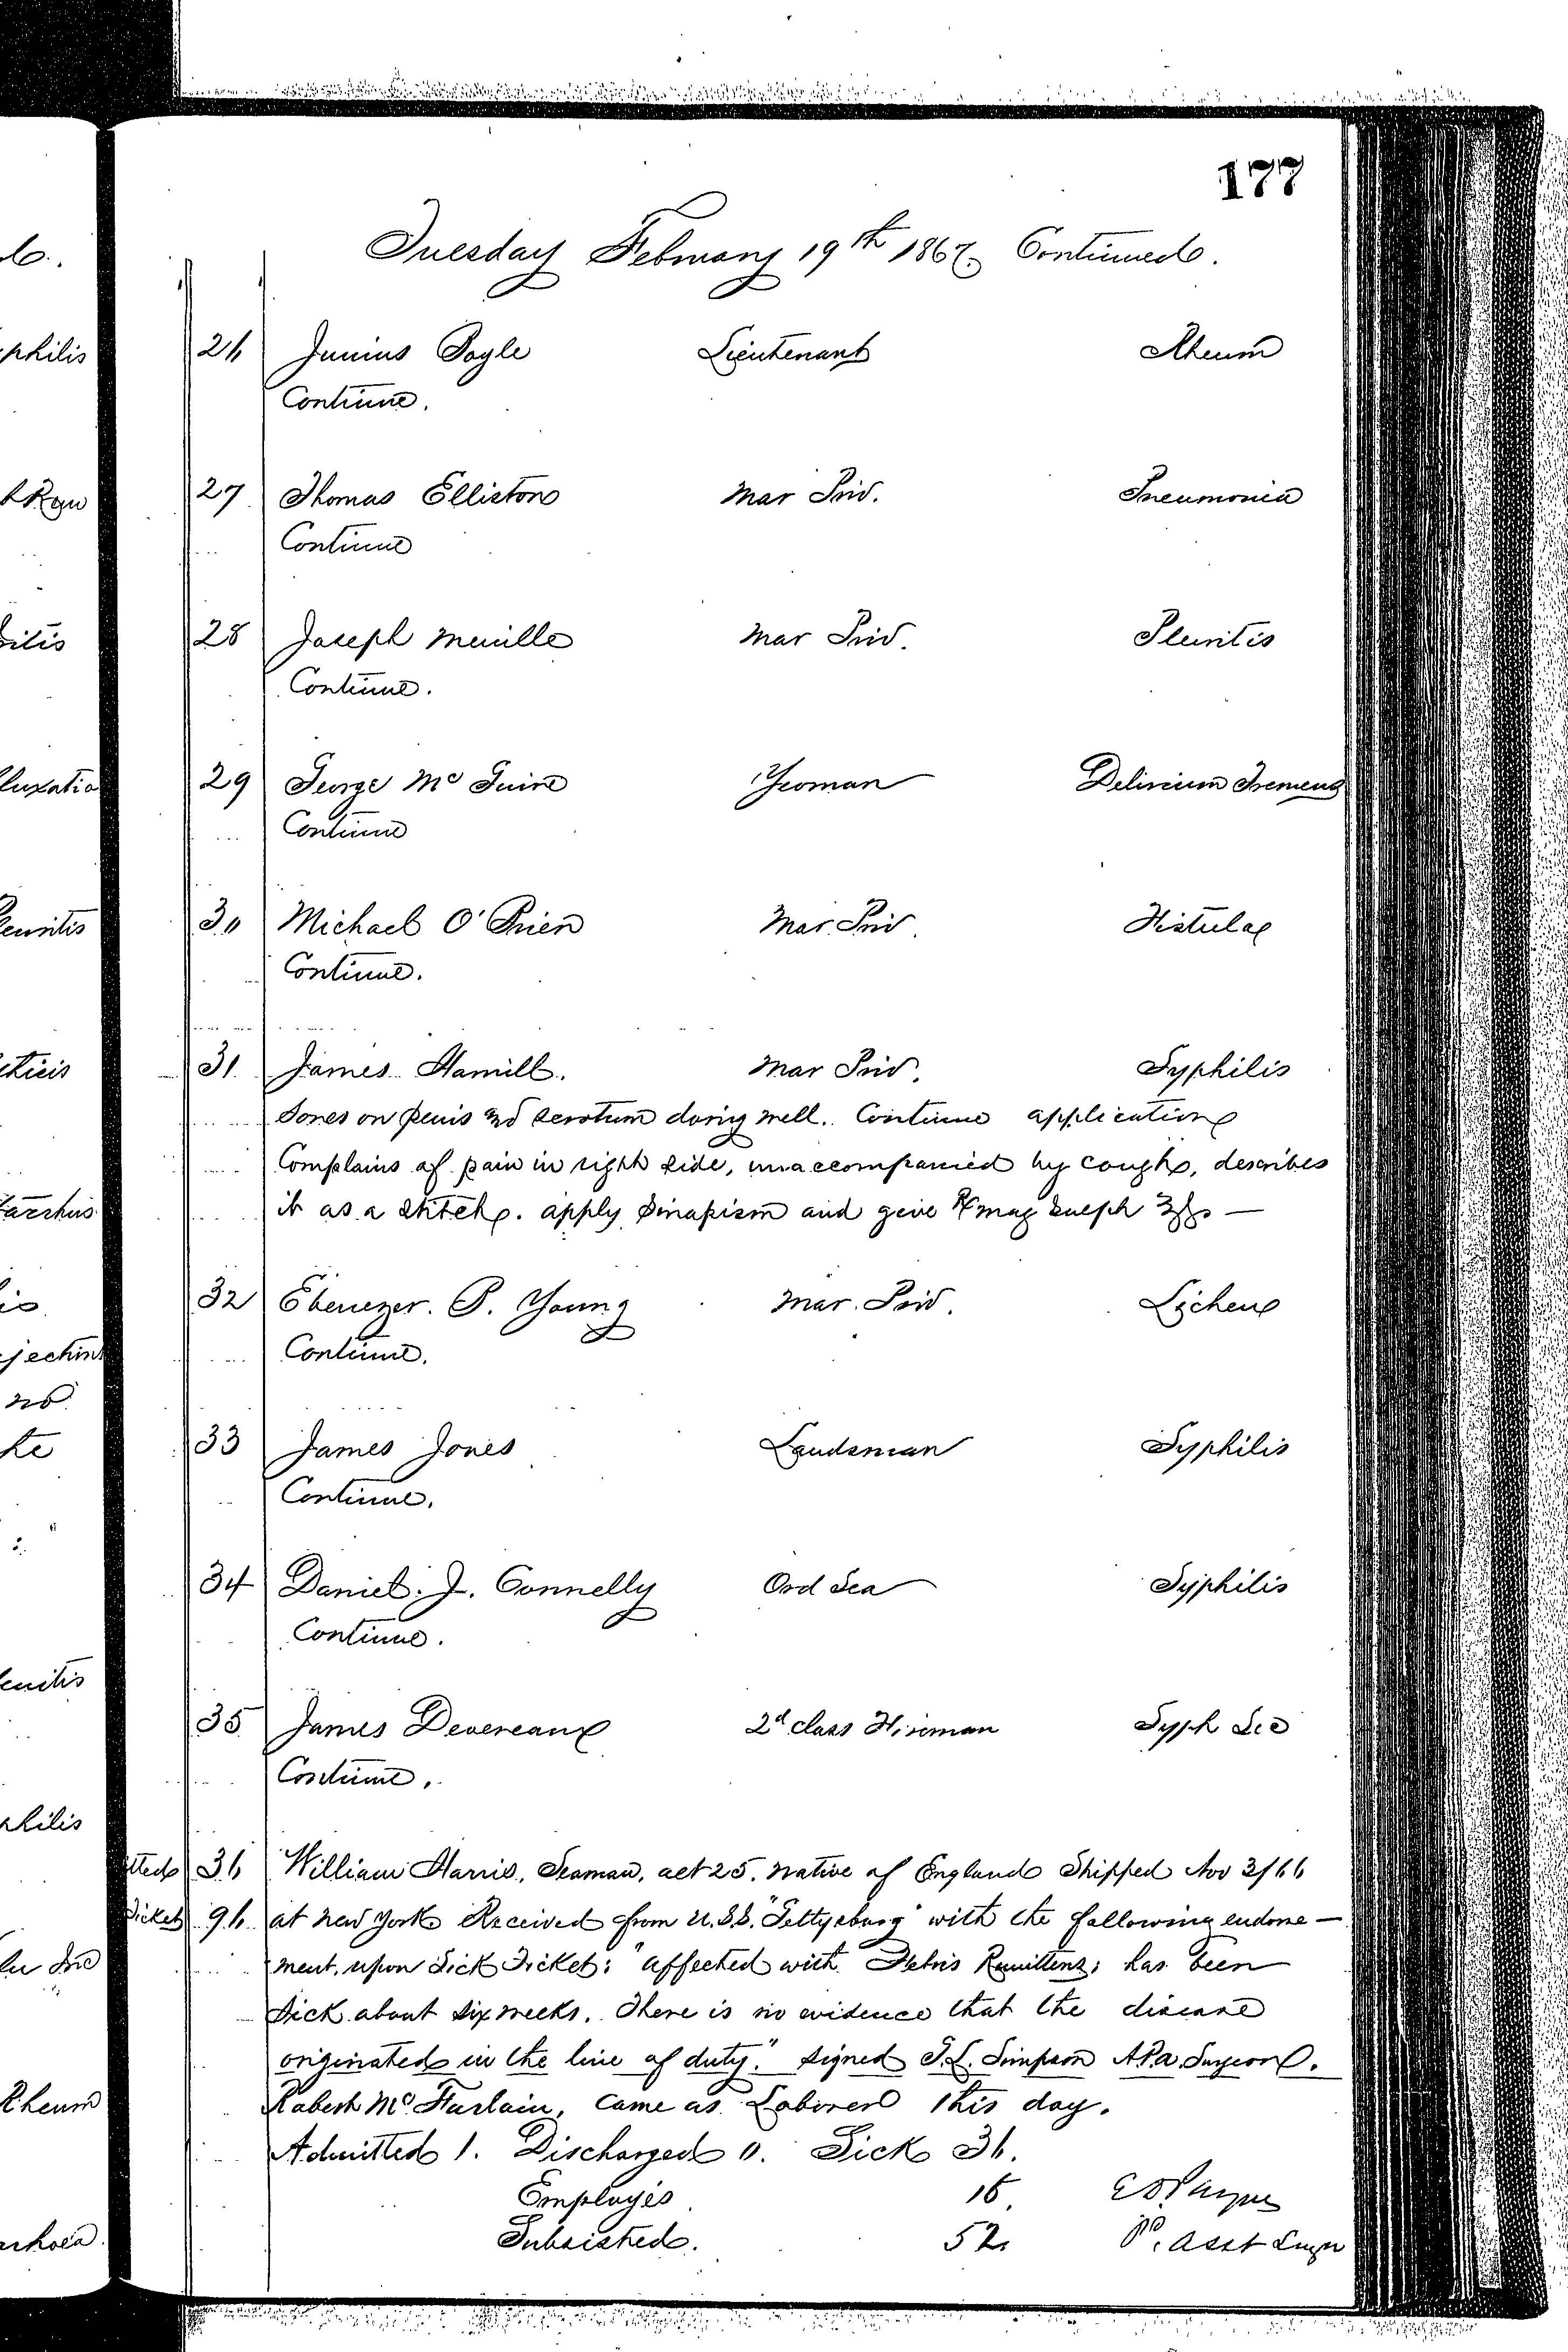 177
Tuesday February 19th 1867. Continued.
26 Junius Boyle Lieutenant Rheum
Continue.
27 Thomas Elliston Mar Priv. Pneumonia
Continue
28 Joseph Merville Mar Priv. Pleuritis
Continue.
29 George McGuire Yeoman Delirium Tremens
Continue
30 Michael O'Brien Mar Priv. Fistulae
Continue.
31 James Hamill. Mar Priv. Syphilis
Sores on penis and scrotum doing well. Continue application
Complains of pain in right side, unaccompanied by cough, describes
it as a stitch. apply Sinapism and give ℞ mag Sulph ℥ss —
32 Ebenezer. P. Young Mar. Priv. Lichen
Continue.
33 James Jones Landsman Syphilis
Continue.
34 Daniel. J. Connelly Ord Sea Syphilis
Continue.
35 James Devereaux 2d class Fireman Syph Sec
Continue.
36 William Harris, Seaman, aet 25. native of England Shipped Nov 3/66
96 at New York Received from U.S.S. "Gettysburg" with the following endorse-
ment, upon Sick Ticket: "affected with Febris Remittens; has been
Sick about six weeks. There is no evidence that the disease
originated in the line of duty." signed T.L. Simpson A.P.A. Surgeon.
Robert McFarlain, came as Laborer this day.
Admitted 1. Discharged 0. Sick 36.
Employés 16
Subsisted. 52
P. Asst Surgn